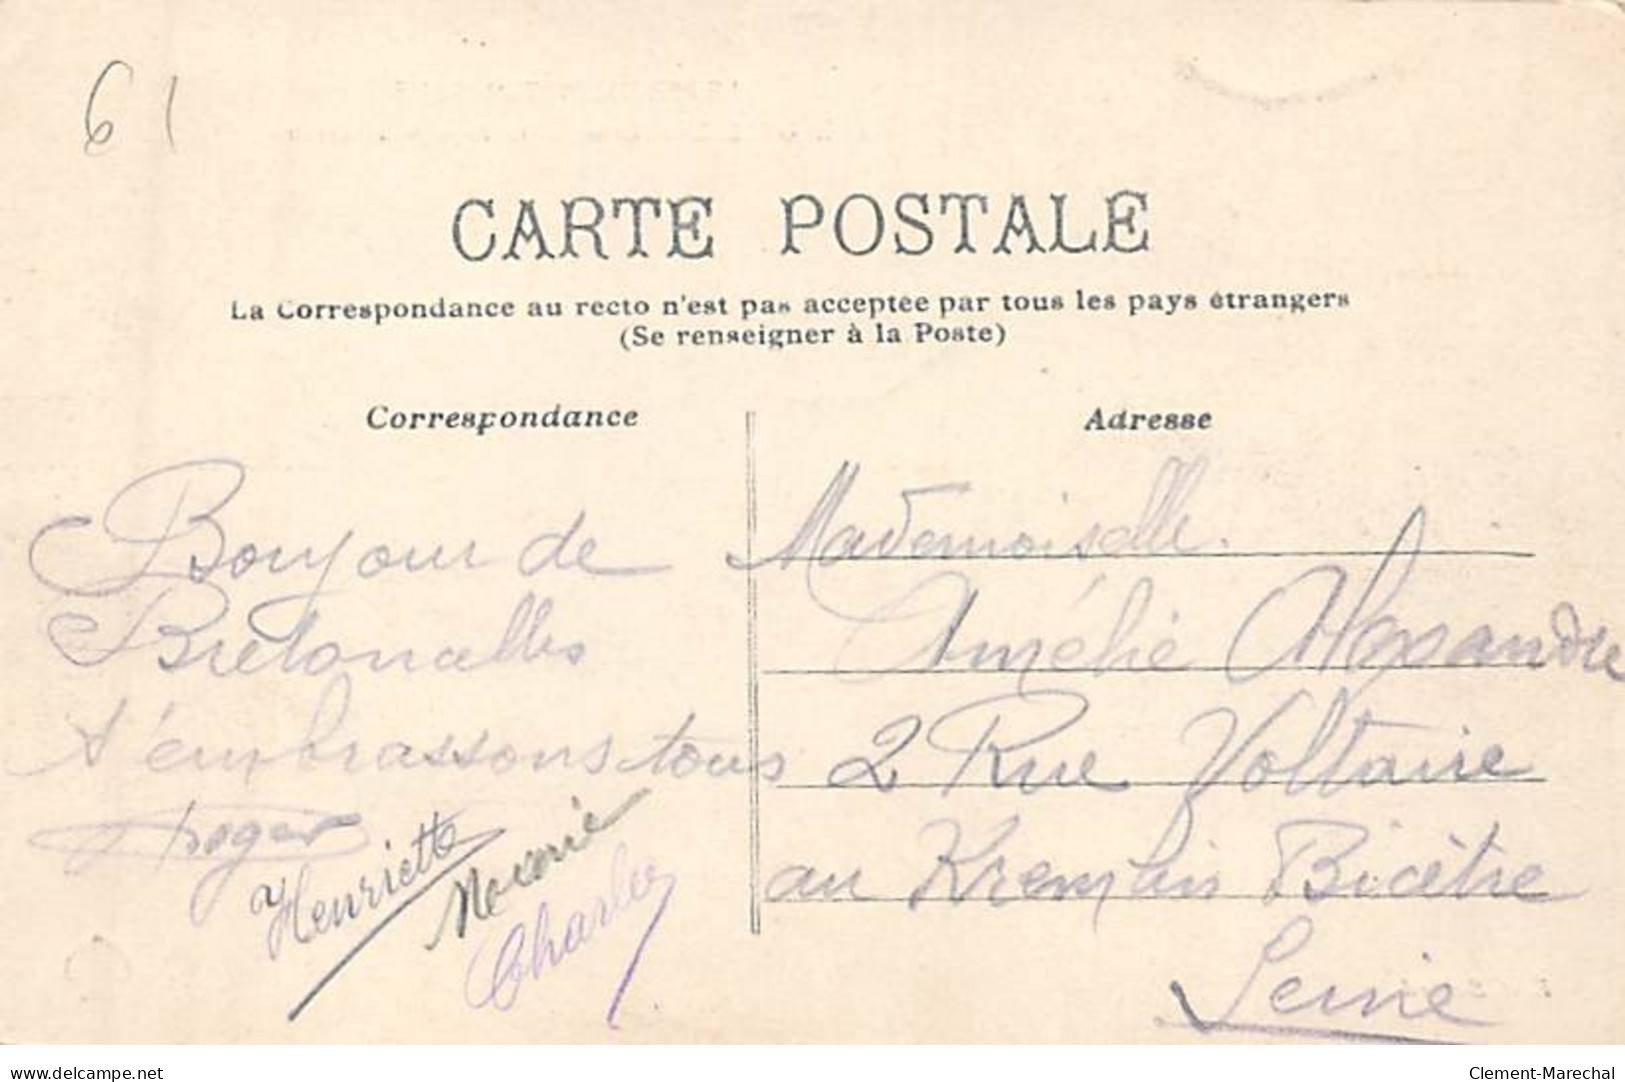 61
CARTE POSTALE
La Correspondance au recto n'est pas acceptée par tous les pays étrangers
(Se renseigner à la Poste)
Correspondance
Bonjour de
Bretoncelles
t'embrassons tous
Roger
Henriette
Charles
Adresse
Mademoiselle
Amélie Alexandre
2 Rue Voltaire
au Kremlin Bicêtre
Seine
www.delcampe.net
Clement-Marechal